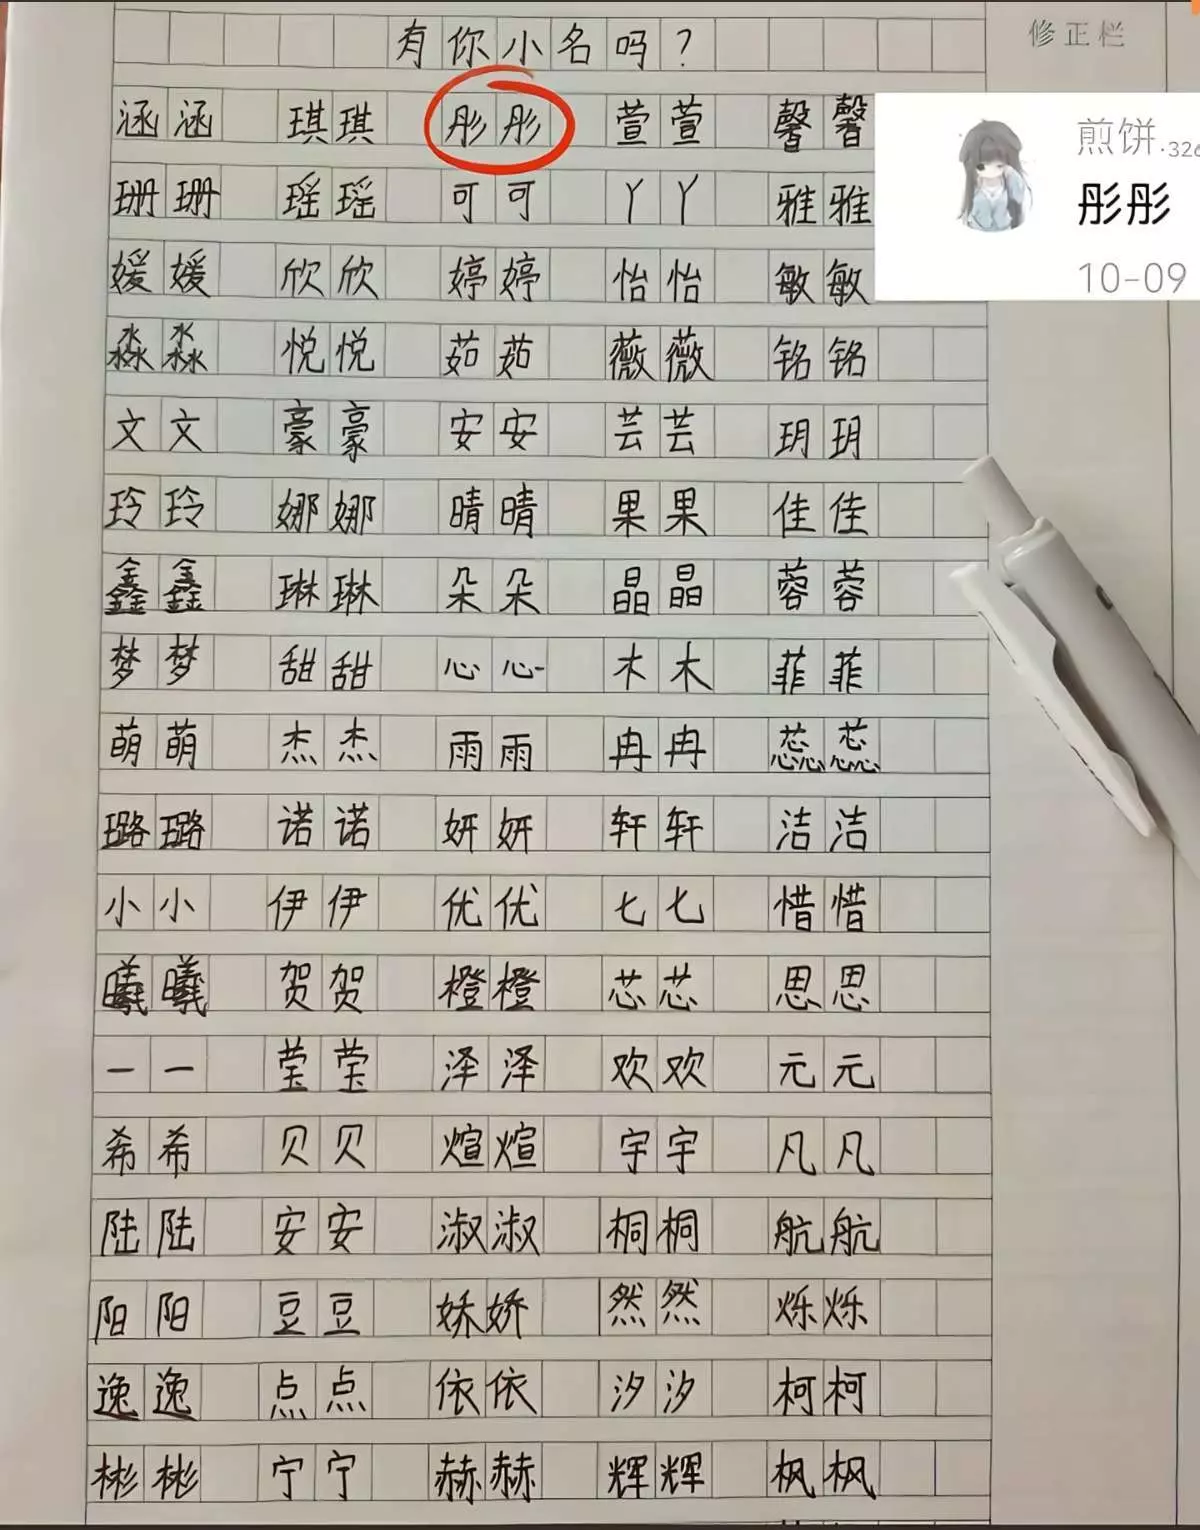 有你小名吗？
修正栏
涵涵 琪琪 彤彤 萱萱 馨馨
煎饼.326
彤彤
10-09
珊珊 瑶瑶 可可 丫丫 雅雅
媛媛 欣欣 婷婷 怡怡 敏敏
淼淼 悦悦 茹茹 薇薇 铭铭
文文 豪豪 安安 芸芸 玥玥
玲玲 娜娜 晴晴 果果 佳佳
鑫鑫 琳琳 朵朵 晶晶 蓉蓉
梦梦 甜甜 心心 木木 菲菲
萌萌 杰杰 雨雨 冉冉 蕊蕊
璐璐 诺诺 妍妍 轩轩 洁洁
小小 伊伊 优优 七七 惜惜
曦曦 贺贺 橙橙 芯芯 思思
一一 莹莹 泽泽 欢欢 元元
希希 贝贝 煊煊 宇宇 凡凡
陆陆 安安 淑淑 桐桐 航航
阳阳 豆豆 娇娇 然然 烁烁
逸逸 点点 依依 汐汐 柯柯
彬彬 宁宁 赫赫 辉辉 枫枫